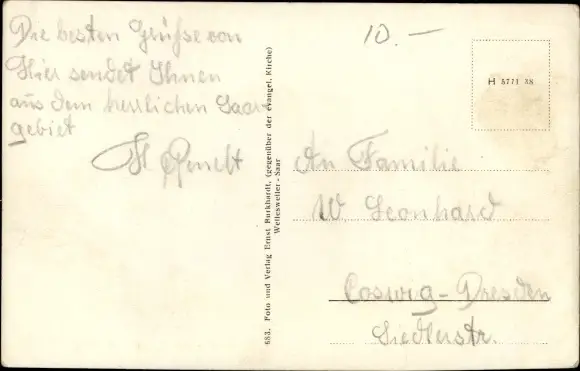 Die besten Grüße von
Hier sendet Ihnen
aus dem herrlichen Saar-
gebiet
10.-
H 5771 38
683. Foto und Verlag Ernst Burkhardt, (gegenüber der evangel. Kirche)
Wellesweiler - Saar
An Familie
W. Leonhard
Coswig - Dresden
Siedlerstr.